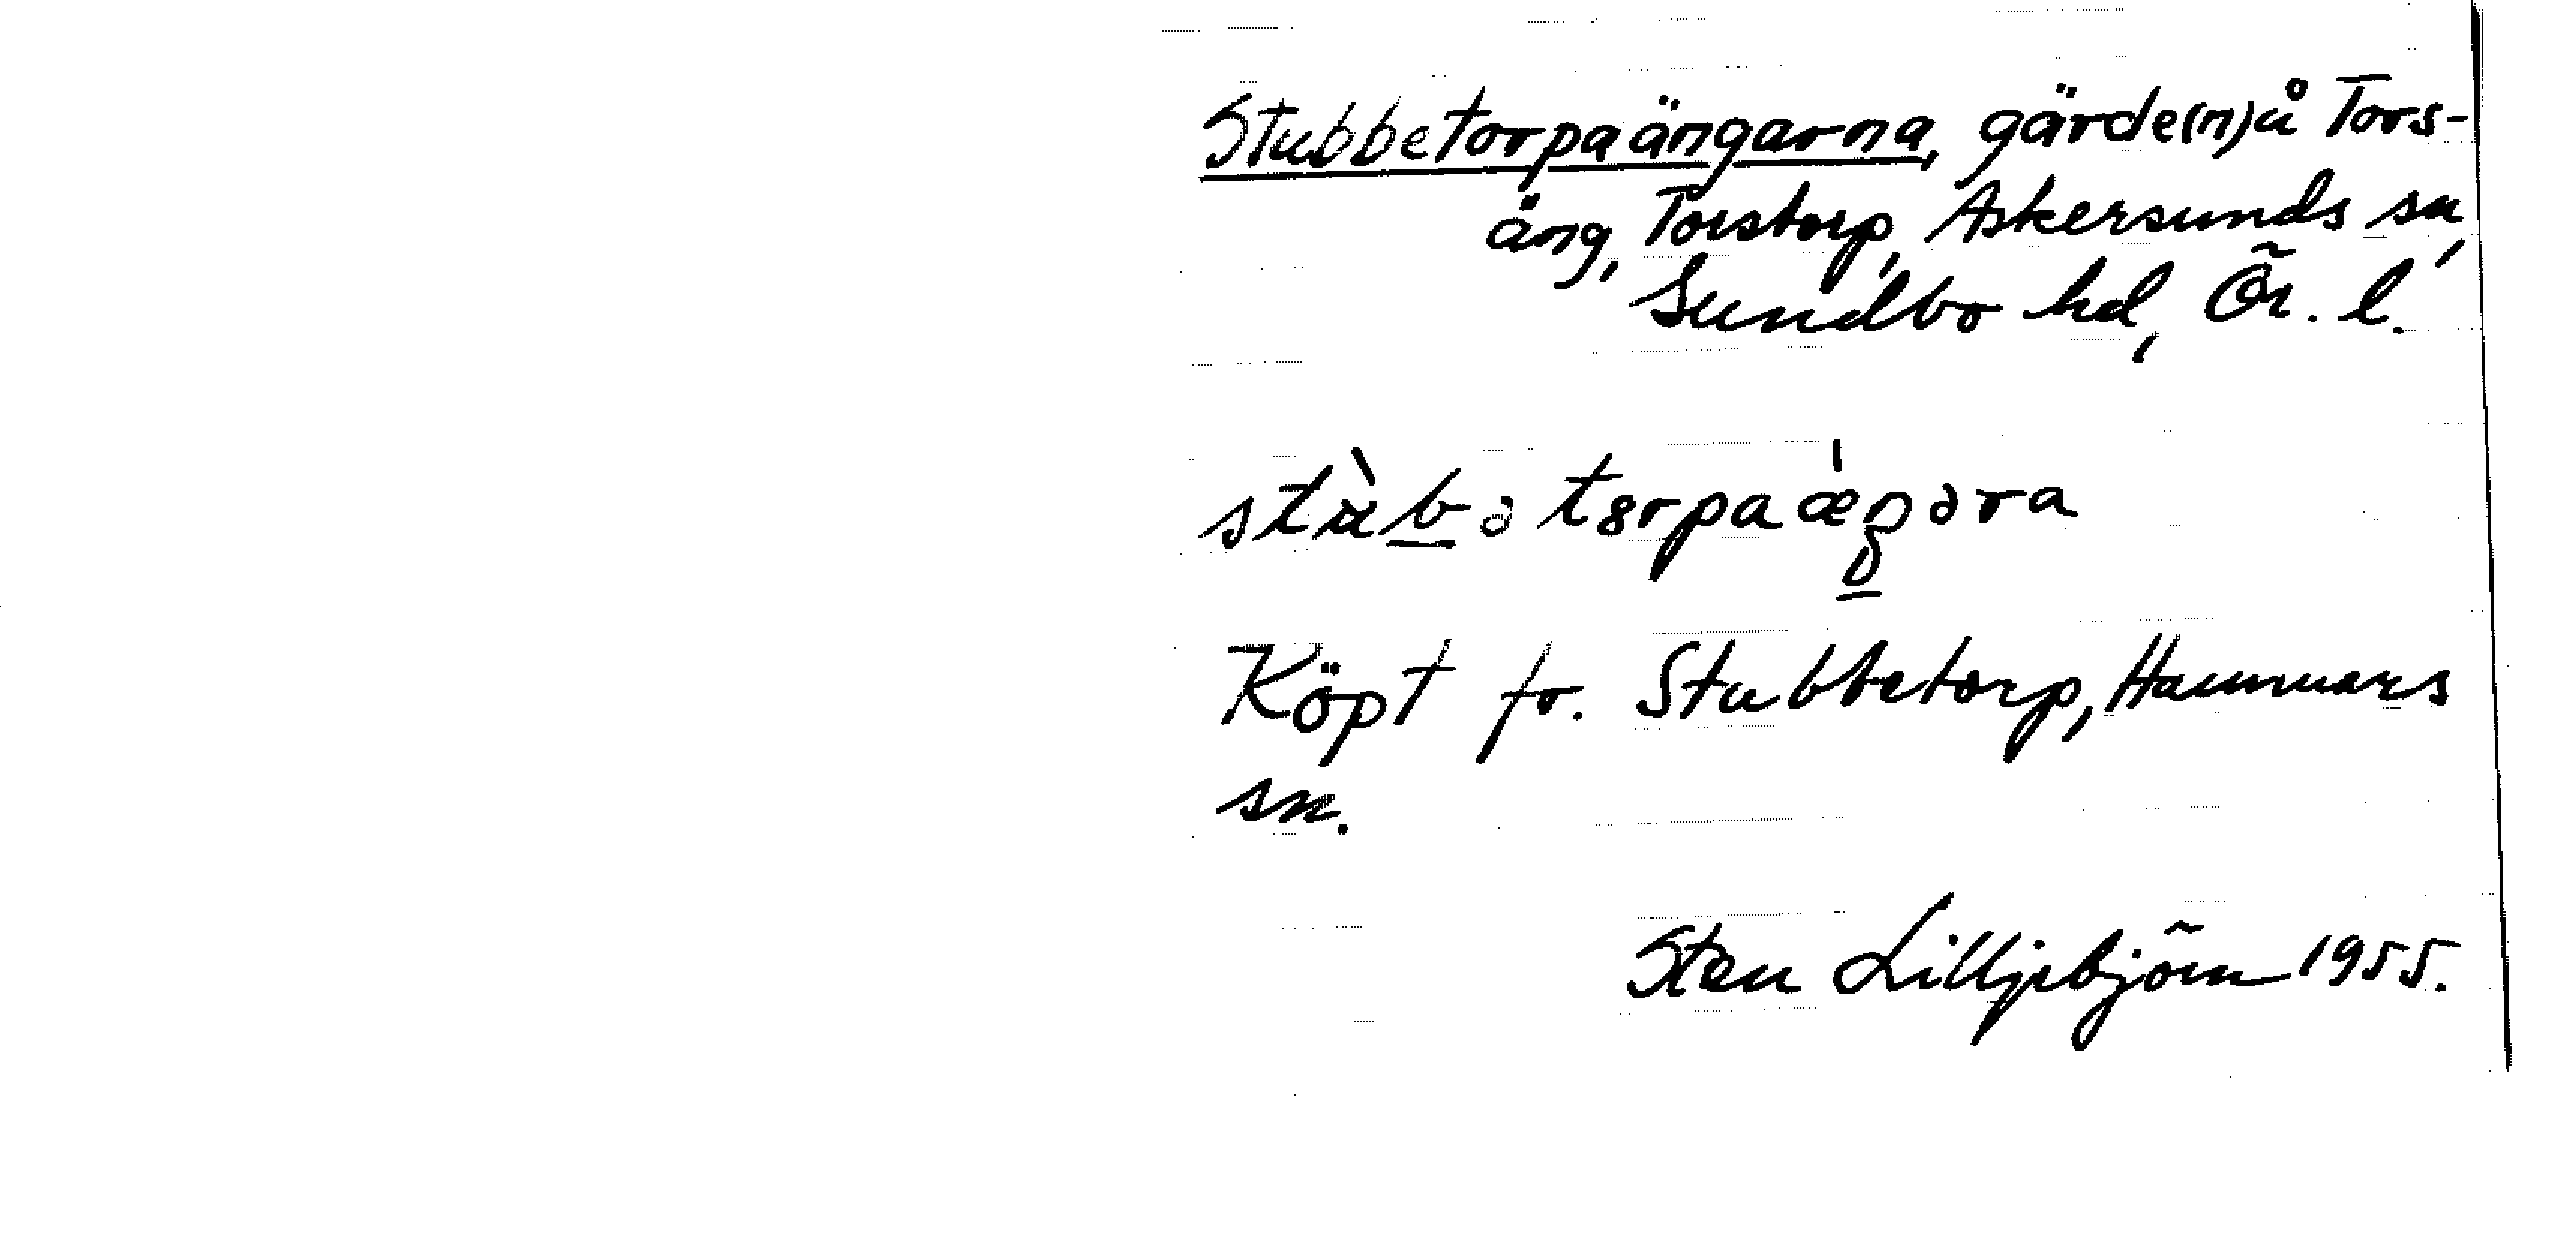 Stubbetorpaängarna, gärde(n) å Tors-
äng, Torstorp, Askersunds sn,
Sundbo hd, Ör. l.
Köpt fr. Stubbetorp, Hammars
sn.
Sten Lilljebjörn 1955.